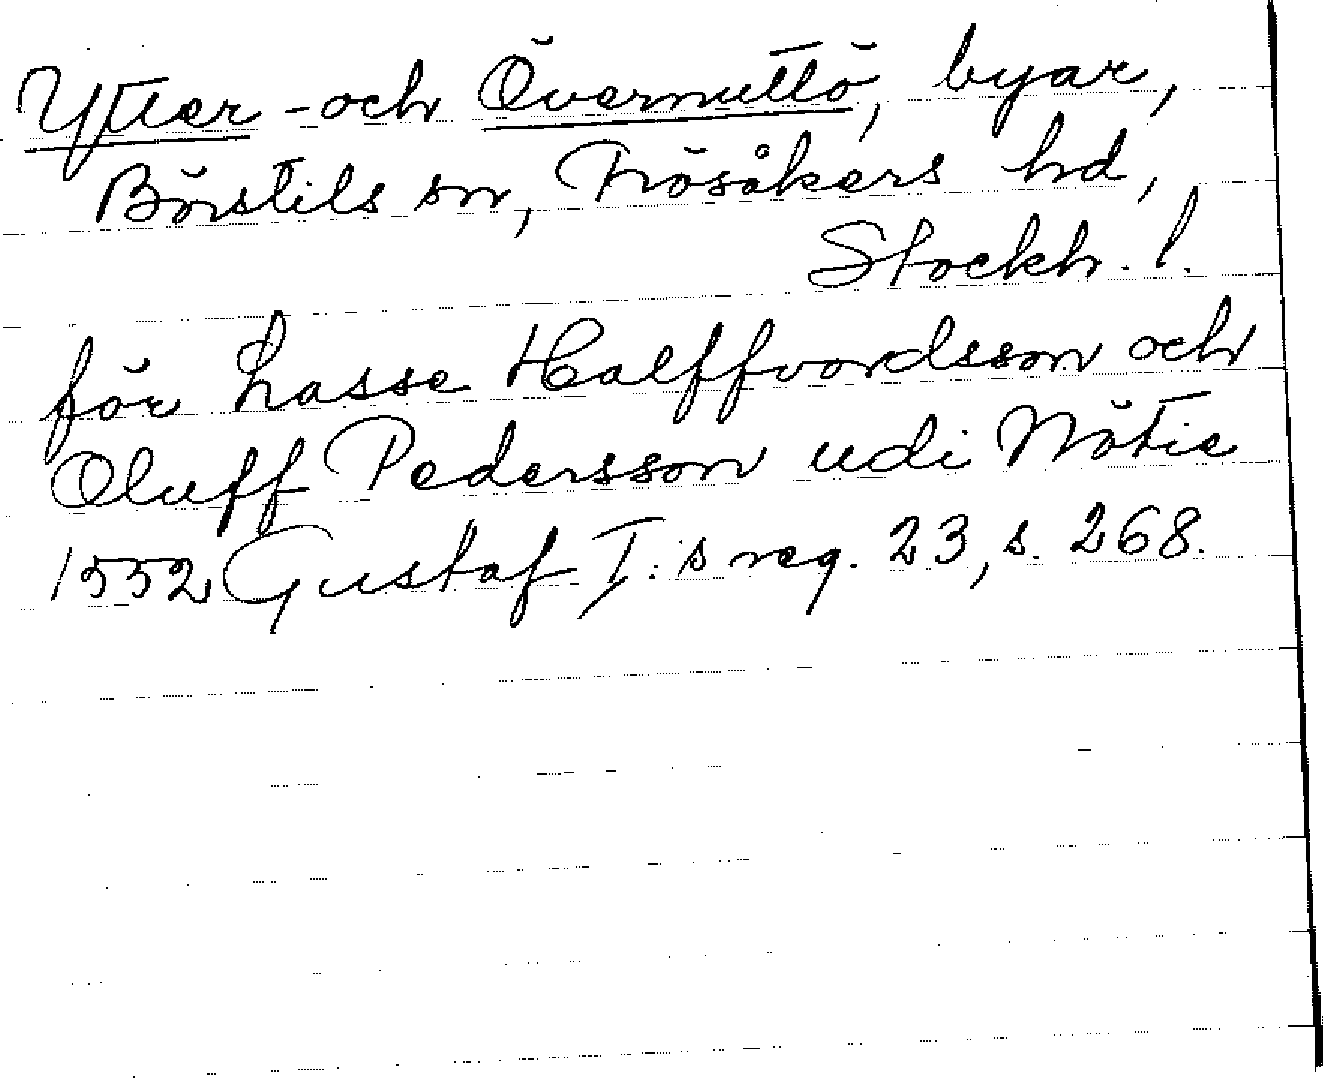 Ytter- och Övermuttö, byar,
Börstils sn, Frösåkers hd,
Stockh. l.
för Lasse Halffvordsson och
Oluff Pedersson udi Nötie
1552 Gustaf I:s reg. 23, s. 268.